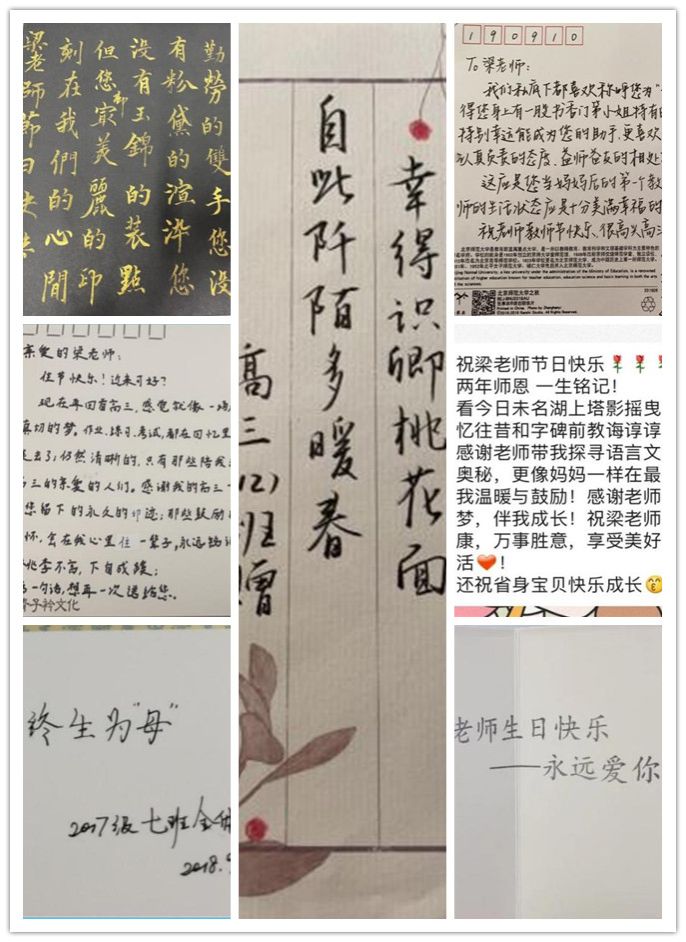 勤勞的雙手您沒
有粉黛的渲染您
沒有玉錦的装點
但您却最美麗的印
刻在我們的心間
梁老師節日快
幸得识卿桃花面
自此阡陌多暖春
高三(12)班
190910
To 梁老师:
我们私底下都喜欢称呼您为"
得您身上有一股书香门第小姐持有的
特别幸运能成为您的助手,更喜欢
认真负责的态度、益师益友的相处
这应是您当妈妈后的第一个教
师的生活状态应是十分美满幸福的
祝老师教师节快乐、很高兴高
北京师范大学之秋
亲爱的梁老师:
佳节快乐!近来可好?
现在再回首高三,感觉就像一场
真切的梦。作业、练习、考试,都在回忆里
远去了;仍然清晰的,只有那些陪我
高三的亲爱的人们。感谢我的高三
您留下的永久的印迹;那些鼓励
怀,会在我心里住一辈子,永远
桃李不言,下自成蹊;
一句话,想再一次送给您。
青子衿文化
祝梁老师节日快乐🌹🌹🌹
两年师恩 一生铭记!
看今日未名湖上塔影摇曳
忆往昔和字碑前教诲谆谆
感谢老师带我探寻语言文
奥秘,更像妈妈一样在最
我温暖与鼓励!感谢老师
梦,伴我成长!祝梁老师
康,万事胜意,享受美好
活❤️!
还祝省身宝贝快乐成长😙
终生为"母"
2017级七班全体
2018.9
老师生日快乐
——永远爱你